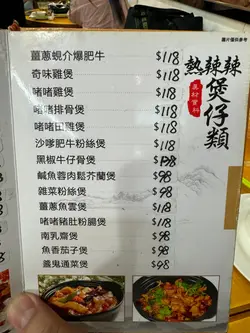 圖片僅供參考
熱辣辣
煲仔類
真材實料
薑蔥蜆介爆肥牛 $118
奇味雞煲 $118
啫啫雞煲 $118
啫啫排骨煲 $118
啫啫田雞煲 $118
沙嗲肥牛粉絲煲 $118
黑椒牛仔骨煲 $118
鹹魚蓉肉鬆芥蘭煲 $98
雜菜粉絲煲 $98
薑蔥魚雲煲 $118
啫啫豬肚粉腸煲 $118
南乳齋煲 $98
魚香茄子煲 $98
鬼通菜煲 $98